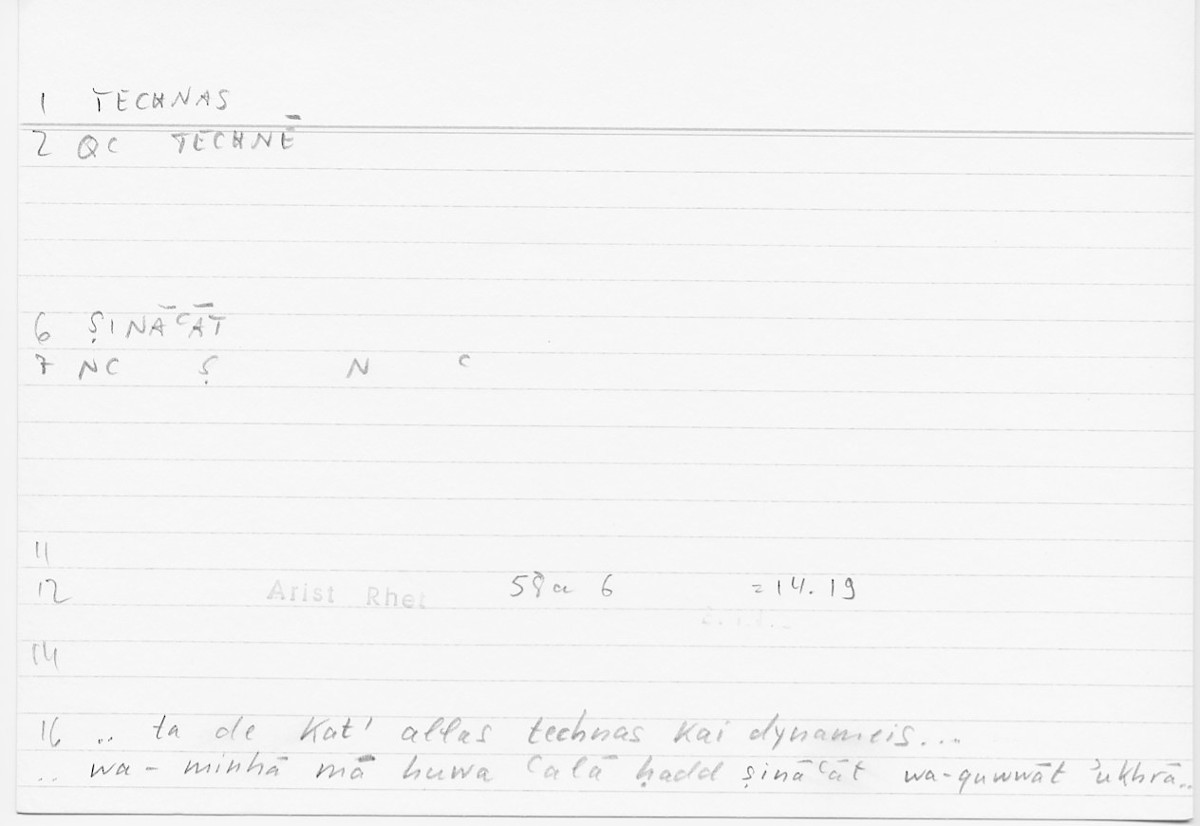 1 TECHNAS
2 QC TECHNĒ
6 ṢINĀʿĀT
7 NC Ṣ N ʿ
11
12 Arist Rhet 58a 6 = 14. 19
14
16 .. ta de kat' allas technas kai dynameis...
.. wa-minhā mā huwa ʿalā ḥadd ṣināʿāt wa-quwwāt ʾukhrā..